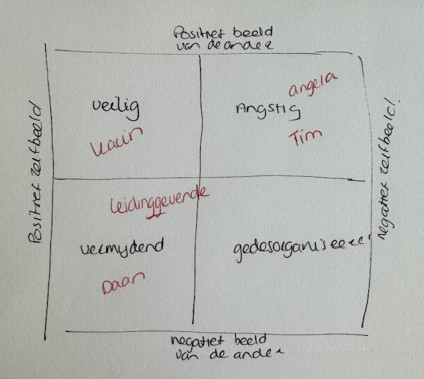 Positief beeld
van de ander
Positief zelfbeeld
veilig
Angstig
angela
Tim
negatief zelfbeeld!
leidinggevende
vermijdend
gedesorganiseerd
Daan
negatief beeld
van de ander